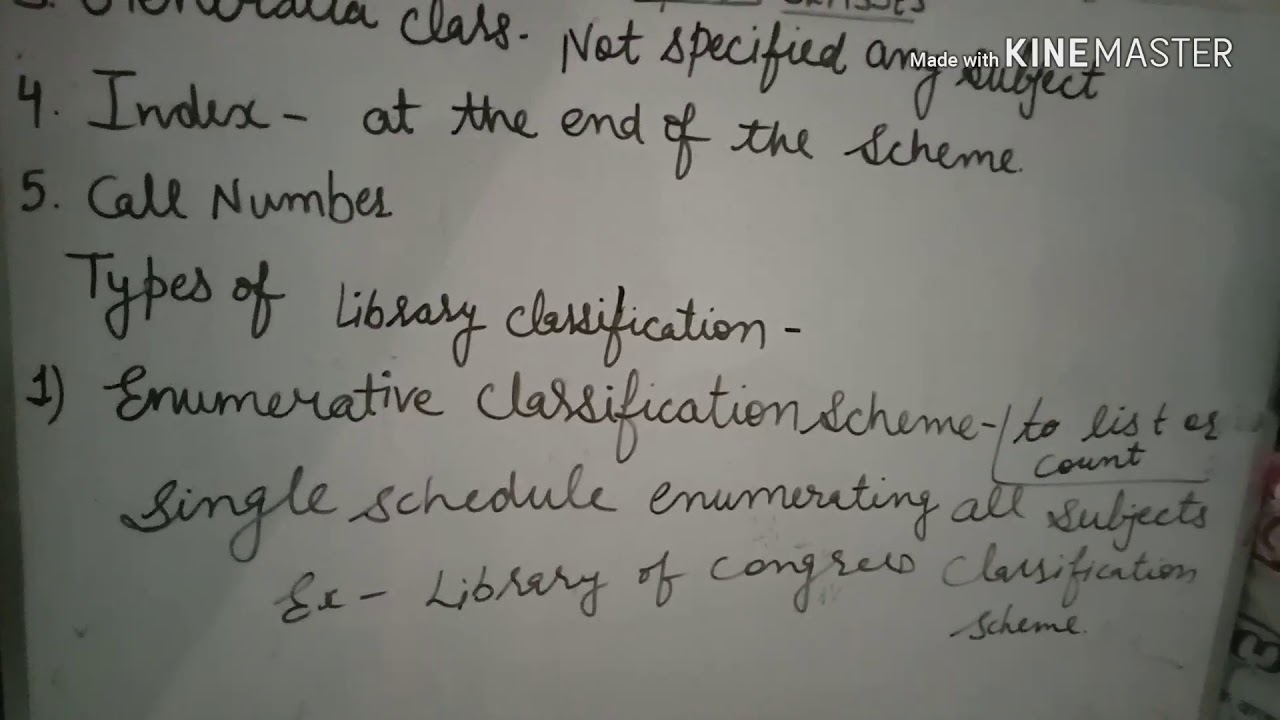 class. Not specified any subject
4. Index - at the end of the scheme.
5. Call Number
Types of Library classification -
1) Enumerative Classification Scheme - to list or
count
Single schedule enumerating all subjects
Ex - Library of Congress Classification
Scheme.
Made with KINEMASTER